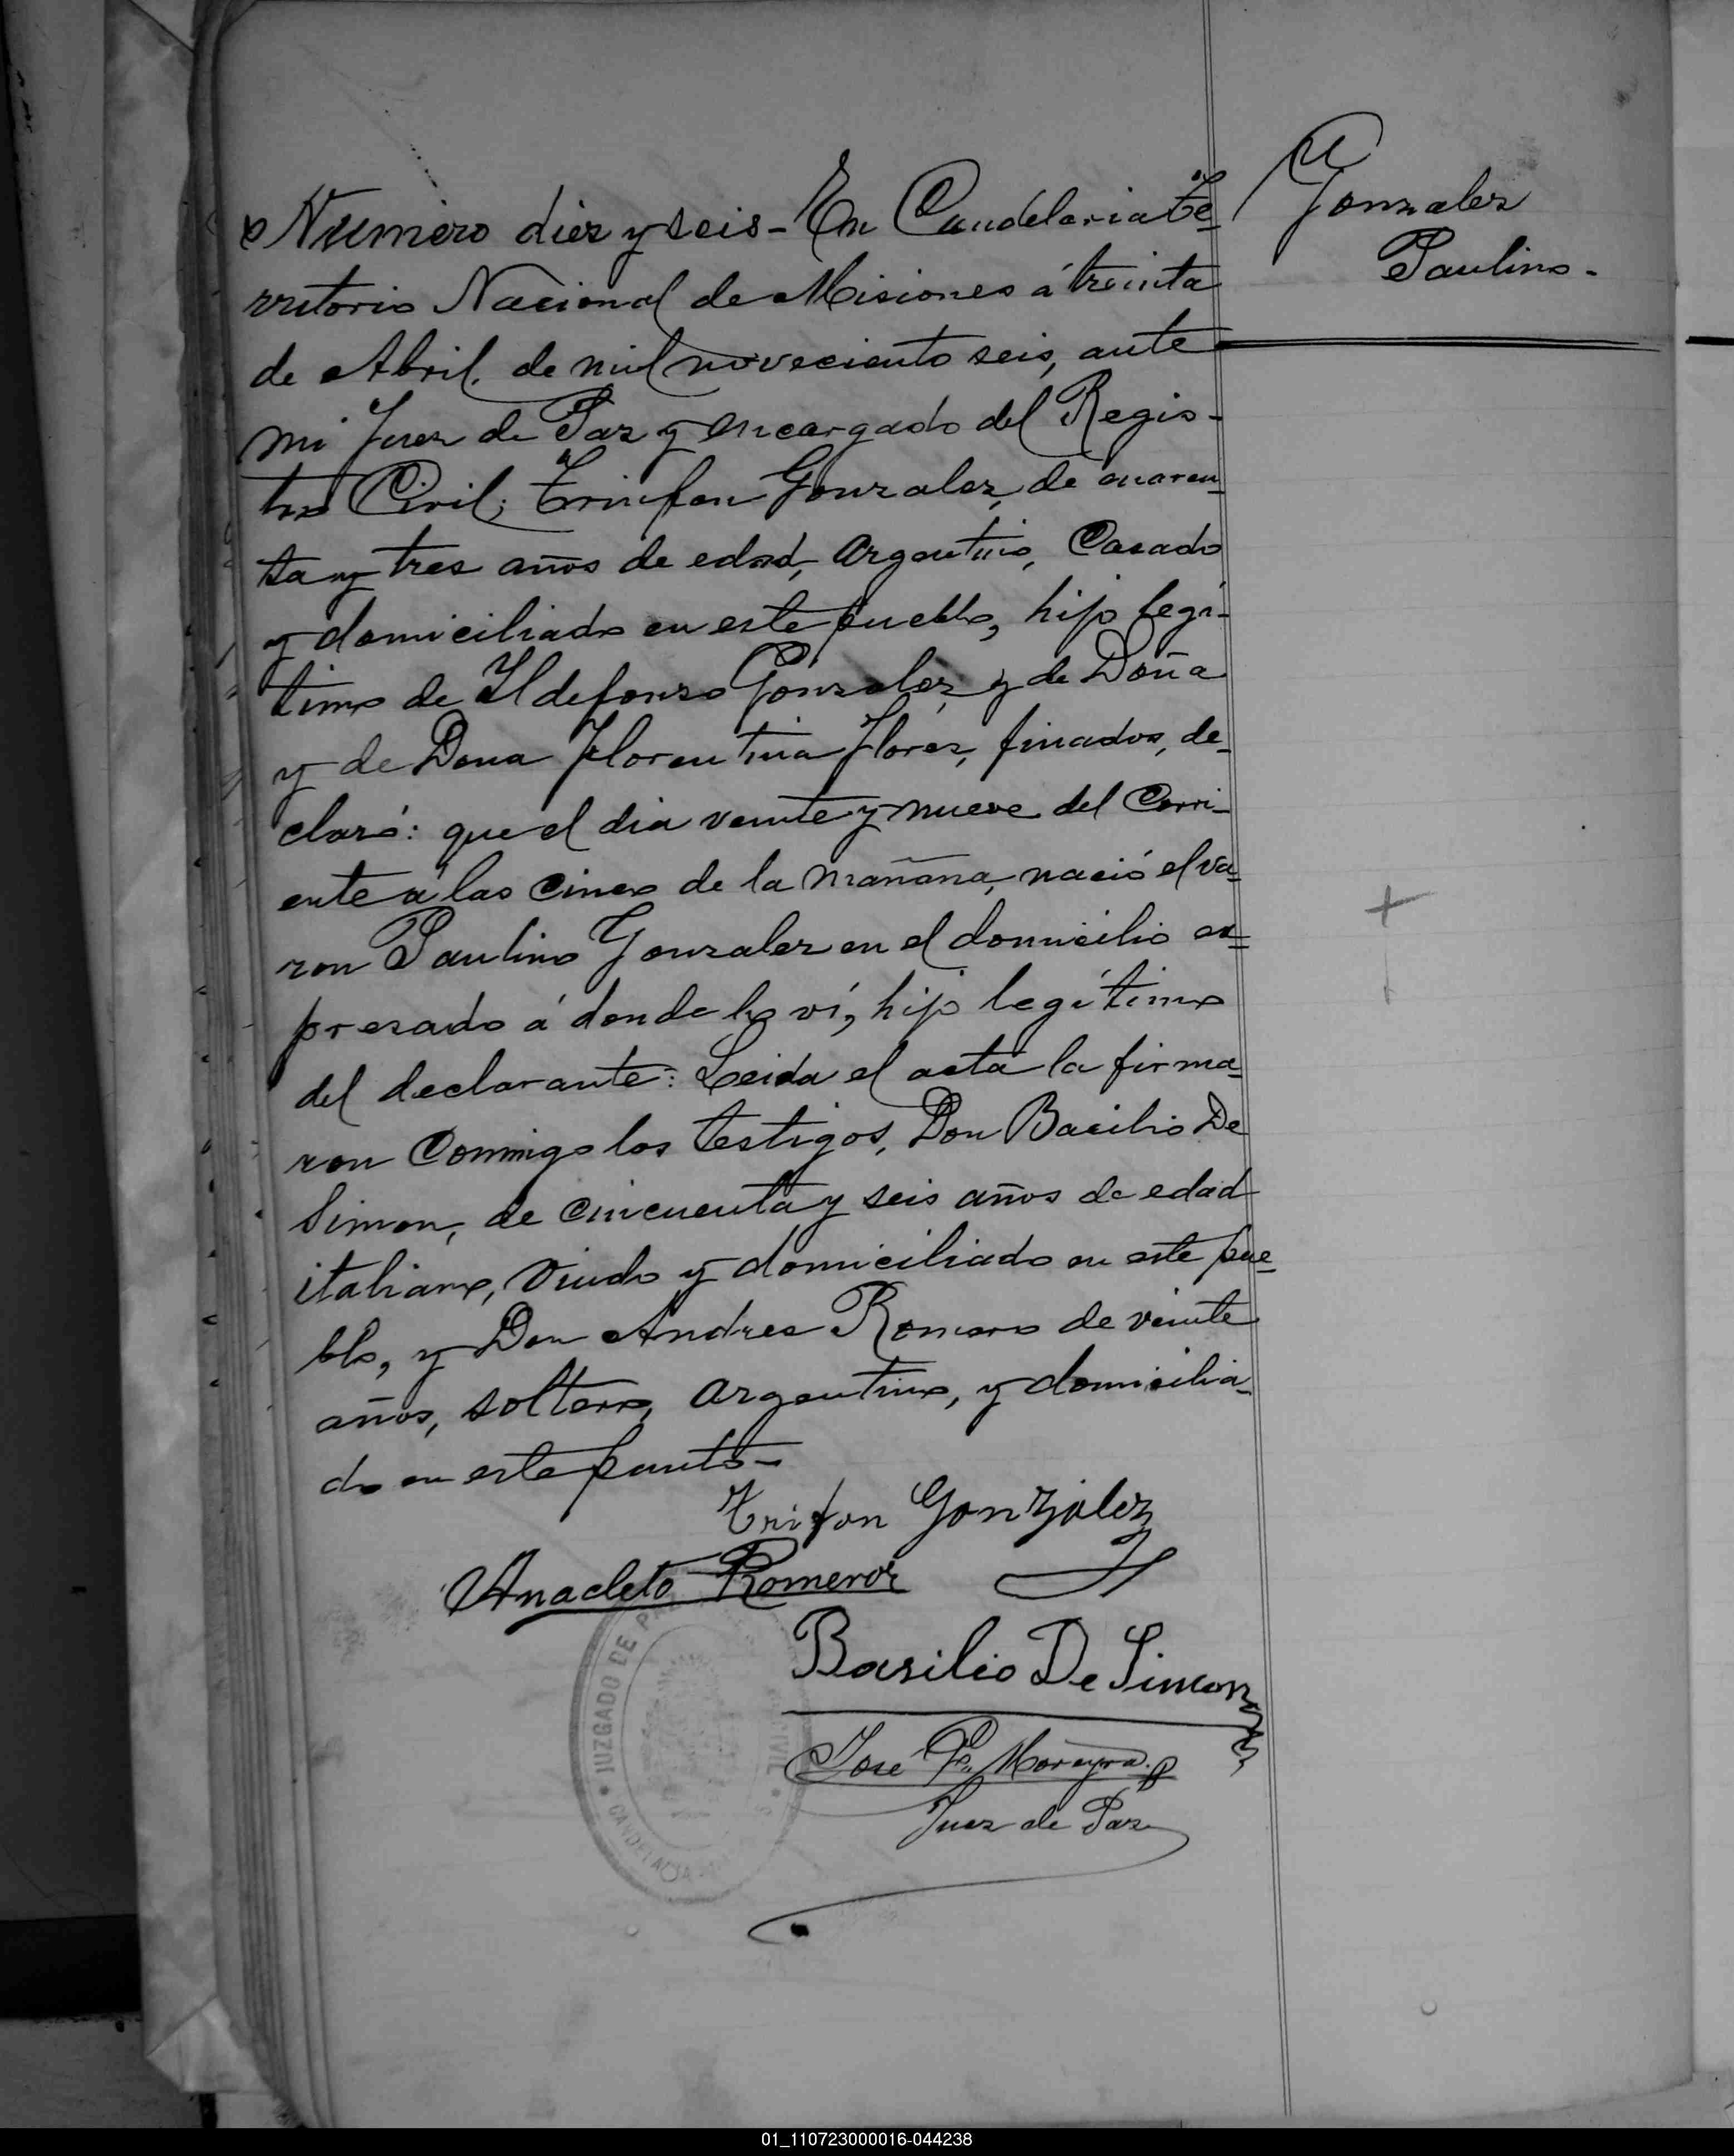 Numero diez y seis - En Candelaria Te-
rritorio Nacional de Misiones á treinta
de Abril de mil noveciento seis, ante
mi Juez de Paz y encargado del Regis-
tro Civil; Trinfon Gonzalez, de cuaren-
ta y tres años de edad, argentino, Casado
y domiciliado en este pueblo, hijo legi-
timo de Ildefonso Gonzalez y de Doña
y de Dona Florentina Florez, finados, de-
claró: que el dia veinte y nueve del Corri-
ente a las cinco de la mañana, nació el va-
ron Paulino Gonzalez en el domicilio es-
presado á donde lo ví, hijo legítimo
del declarante: Leida el acta la firma-
ron Conmigo los testigos, Don Bacilio De
Simon, de cincuenta y seis años de edad
italiano, viudo y domiciliado en este pue-
blo, y Don Andres Romero de veinte
años, soltero, argentino, y domicilia-
do en este punto -
Trifon Gonzalez
Anacleto Romero
Basilio De Simon
José P. Moreyra
Juez de Paz
JUZGADO DE PAZ
CANDELARIA
Gonzalez
Paulino -
01_110723000016-044238